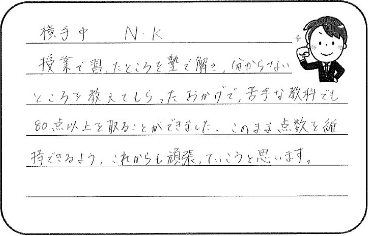 横手中 N.K
授業で習ったところを塾で解き、分からない
ところを教えてもらったおかげで、苦手な教科でも
80点以上を取ることができました。このまま点数を維
持できるよう、これからも頑張っていこうと思います。